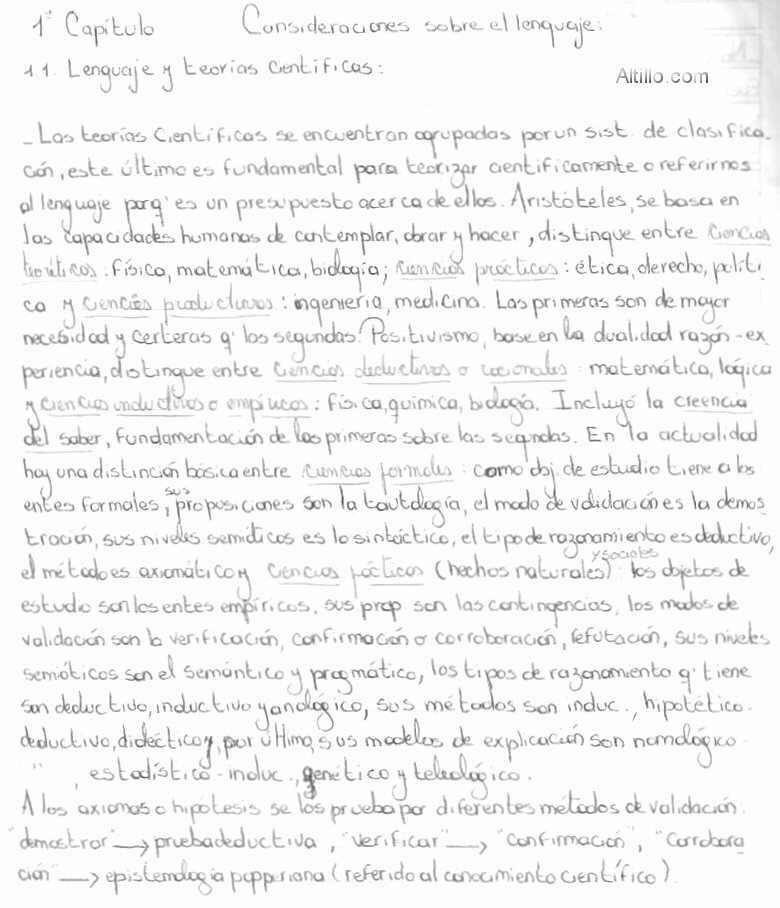 1° Capítulo Consideraciones sobre el lenguaje:
1.1. Lenguaje y teorías científicas:
Altillo.com
- Las teorías Científicas se encuentran agrupadas por un sist. de clasifica
ción, este último es fundamental para teorizar científicamente o referirnos
al lenguaje porq' es un presupuesto acerca de ellos. Aristóteles, se basa en
las capacidades humanas de contemplar, obrar y hacer, distingue entre Ciencias
teoréticas: física, matemática, biología; ciencias prácticas: ética, derecho, políti
ca y ciencias productivas: ingeniería, medicina. Las primeras son de mayor
necesidad y certeras q' las segundas. Positivismo, base en la dualidad razón-ex
periencia, distingue entre ciencias deductivas o racionales: matemática, lógica
y ciencias inductivas o empíricas: física, química, biología. Incluyó la creencia
del saber, fundamentación de las primeras sobre las segundas. En la actualidad
hay una distinción básica entre ciencias formales: como obj. de estudio tiene a los
entes formales, sus proposiciones son la tautología, el modo de validación es la demos
tración, sus niveles semióticos es lo sintáctico, el tipo de razonamiento es deductivo,
el método es axiomático y ciencias fácticas (hechos naturales y sociales): los objetos de
estudio son los entes empíricos, sus prop son las contingencias, los modos de
validación son la verificación, confirmación o corroboración, refutación, sus niveles
semióticos son el semántico y pragmático, los tipos de razonamiento q' tiene
son deductivo, inductivo y analógico, sus métodos son induc., hipotético-
deductivo, didéctico y, por último, sus modelos de explicación son nomológico-
" , estadístico-induc., genético y teleológico.
A los axiomas o hipótesis se los prueba por diferentes métodos de validación.
"demostrar" → prueba deductiva, "verificar" → "confirmación", "Corrobora
ción" → epistemología popperiana (referido al conocimiento científico).